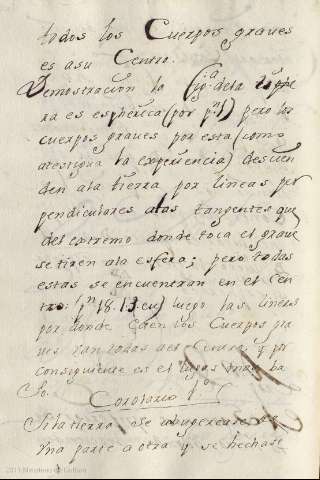 todos los Cuerpos graves
es a su Centro.
Demostracion la fig.ª dela tier
ra es espherica (por p.n 1) pero los
cuerpos graves por esta (como
atestigua la experiencia) descien
den ala tierra por lineas per
pendiculares alas tangentes que
del extremo donde toca el grave
se tiren ala esfera; pero todas
estas se encuentran en el Cen
tro: (p.n 18. 13. eu) luego las lineas
por donde caen los Cuerpos gra
ves van todas al Centro, y por
consiguiente es el lugar mas ba
jo.
Corolario 1º
Si la tierra se abugerease de
una parte a otra y se hechase
2011 Ministerio de Cultura